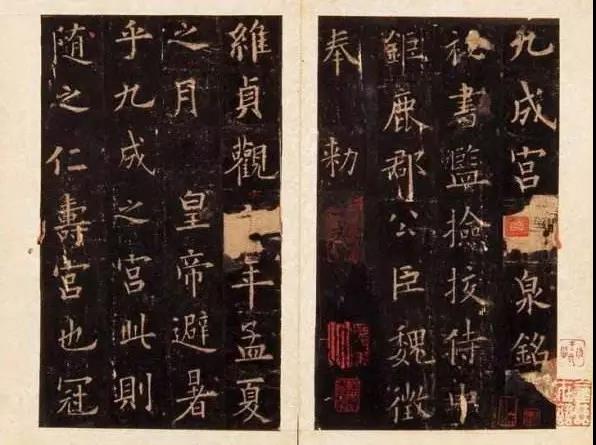 九成宮泉銘
祕書監撿挍侍中
鉅鹿郡公臣魏徵
奉 勑
維貞觀年孟夏
之月 皇帝避暑
乎九成之宮此則
随之仁壽宮也冠